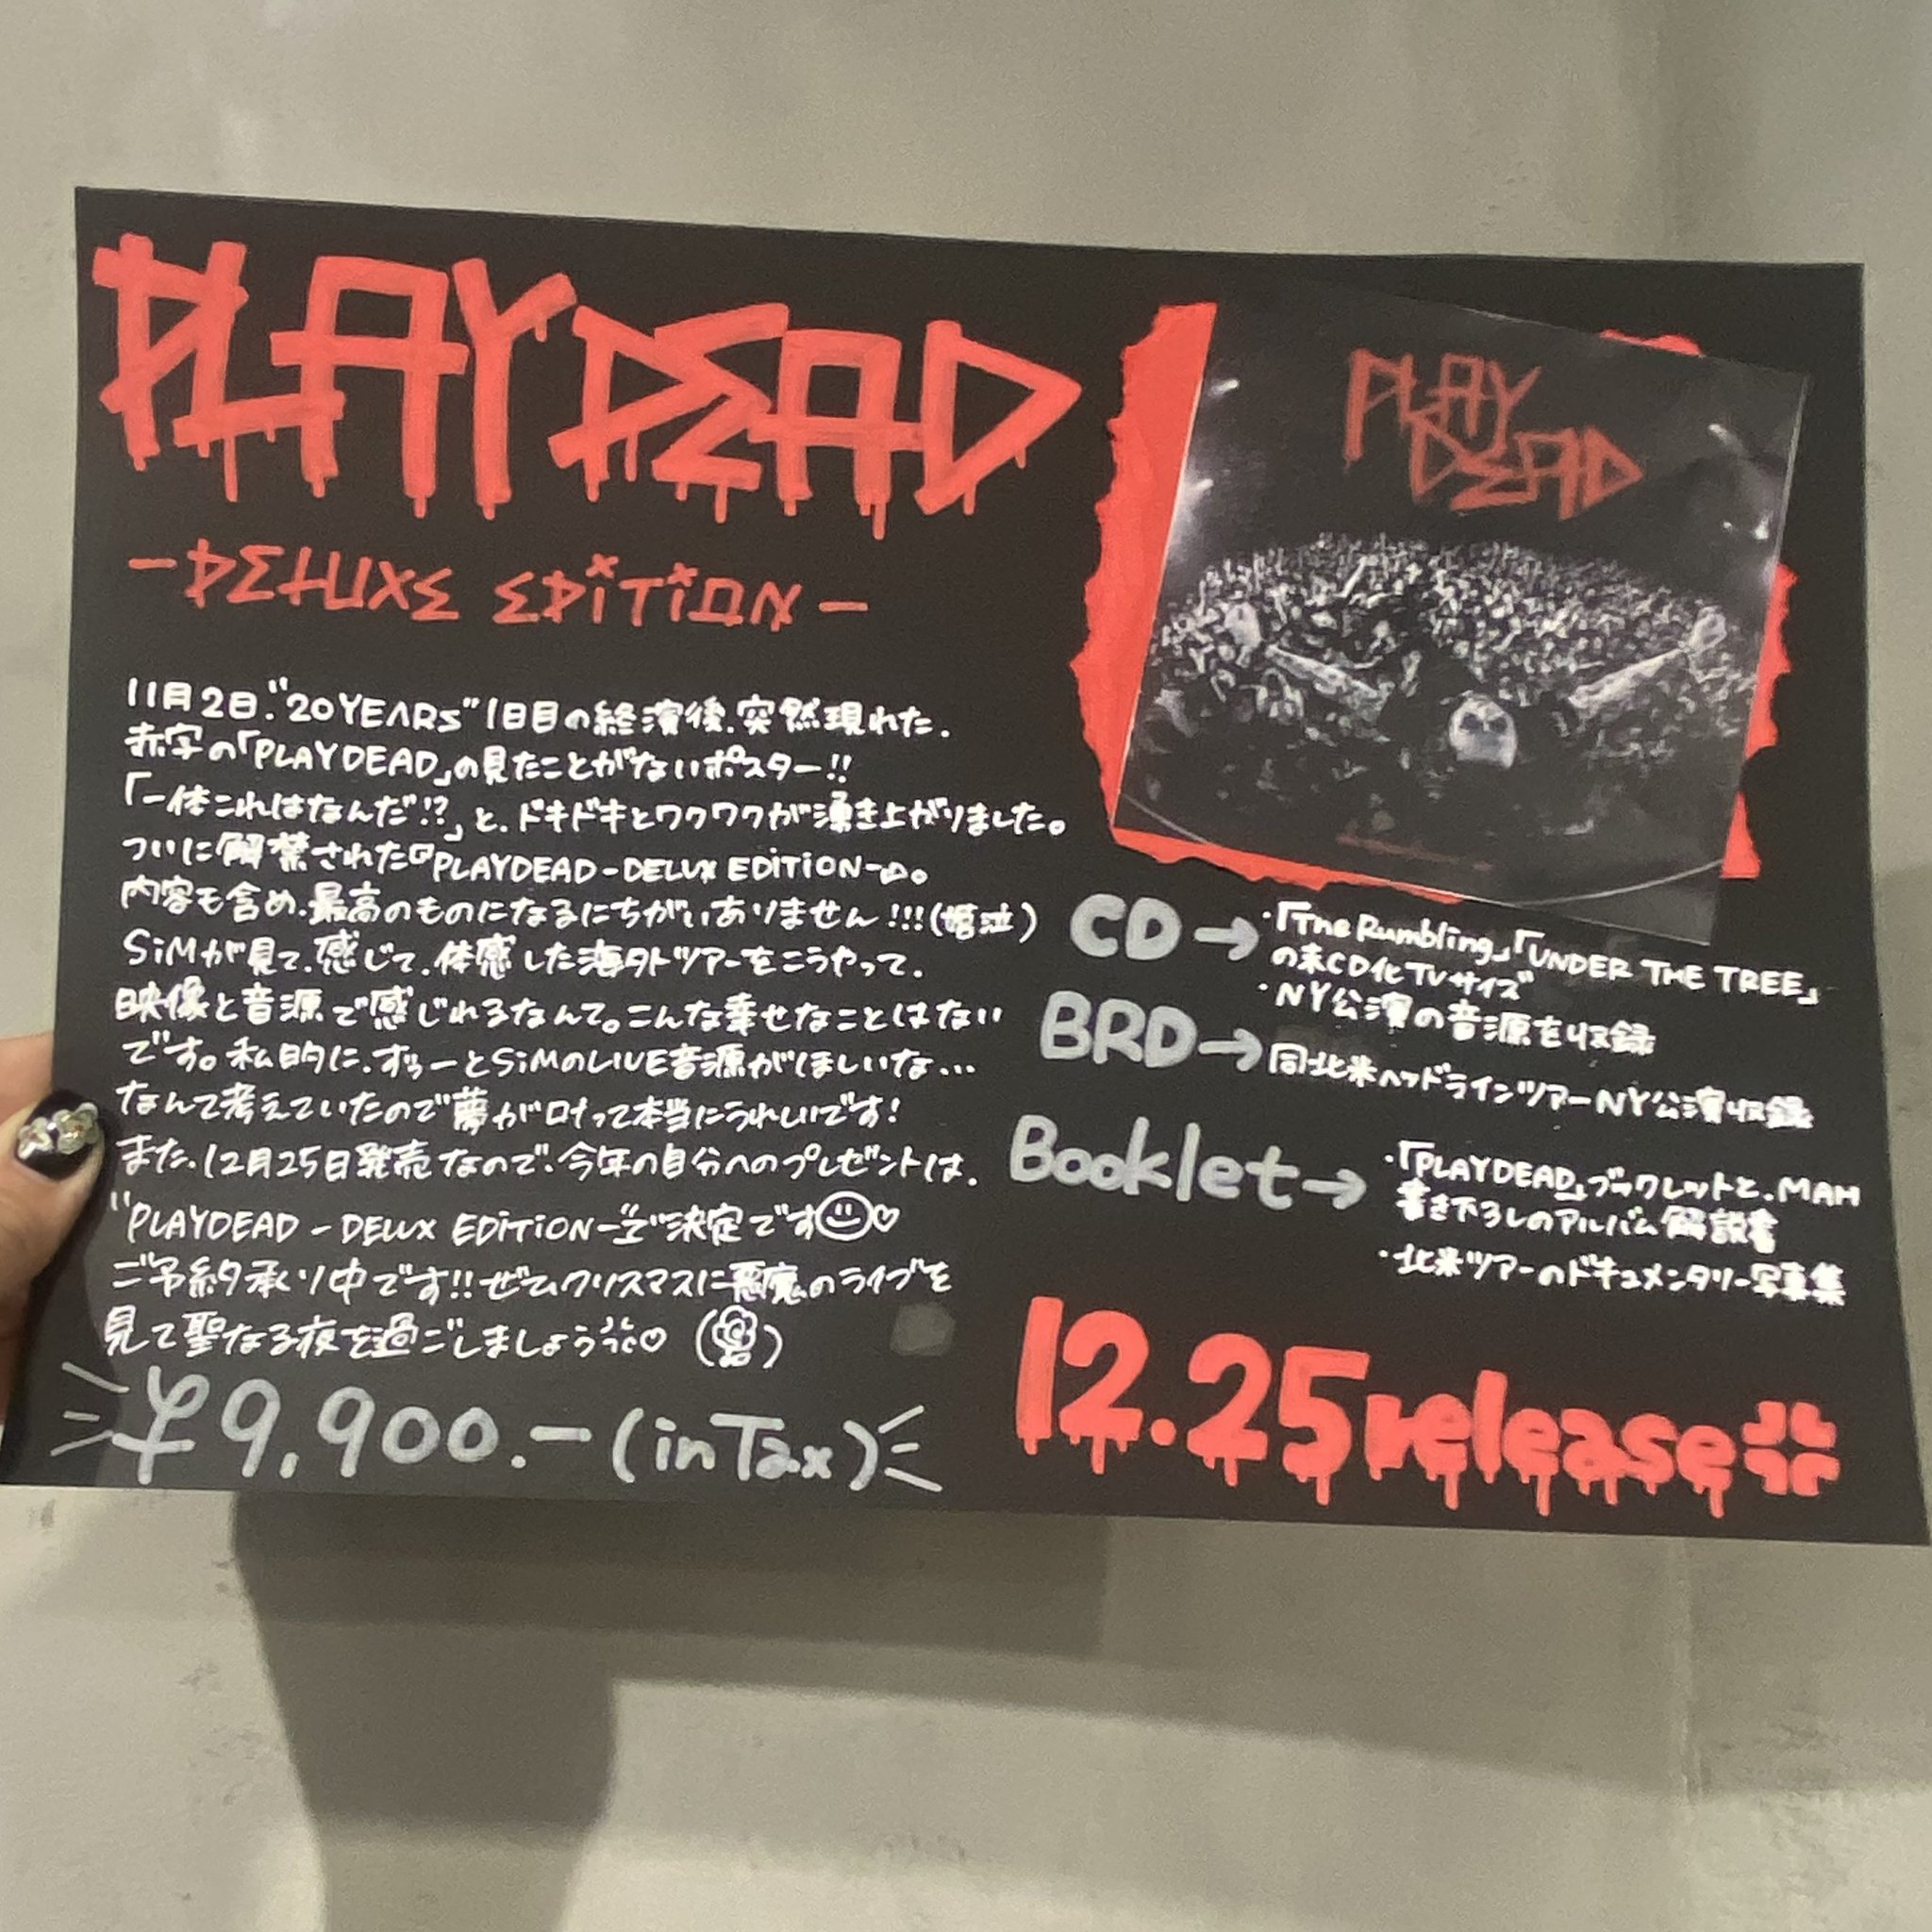 PLAYDEAD
-DELUXE EDiTiON-
11月2日."20YEARS"1日目の終演後.突然現れた.
赤字の「PLAYDEAD」の見たことがないポスター!!
「一体これはなんだ!?」と.ドキドキとワクワクが湧き上がりました。
ついに解禁された『PLAYDEAD-DELUX EDiTiON-』。
内容も含め.最高のものになるにちがいありません!!!(嬉泣)
SiMが見て.感じて.体感した海外ツアーをこうやって.
映像と音源で感じれるなんて。こんな幸せなことはない
です。私的に.ずぅーとSiMのLIVE音源がほしいな…
なんて考えていたので夢が叶って本当にうれしいです!
また.12月25日発売なので.今年の自分へのプレゼントは.
"PLAYDEAD-DELUX EDiTiON-"で決定です☺♡
ご予約承り中です!!ぜひクリスマスに悪魔のライブを
見て聖なる夜を過ごしましょう💢♡
¥9,900.-(in Tax)
PLAY
DEAD
CD→
・「The Rumbling」「UNDER THE TREE」
の未CD化TVサイズ
・NY公演の音源を収録
BRD→同北米ヘッドラインツアーNY公演収録
Booklet→
・「PLAYDEAD」ブックレットと.MAH
書き下ろしのアルバム解説書
・北米ツアーのドキュメンタリー写真集
12.25release💢